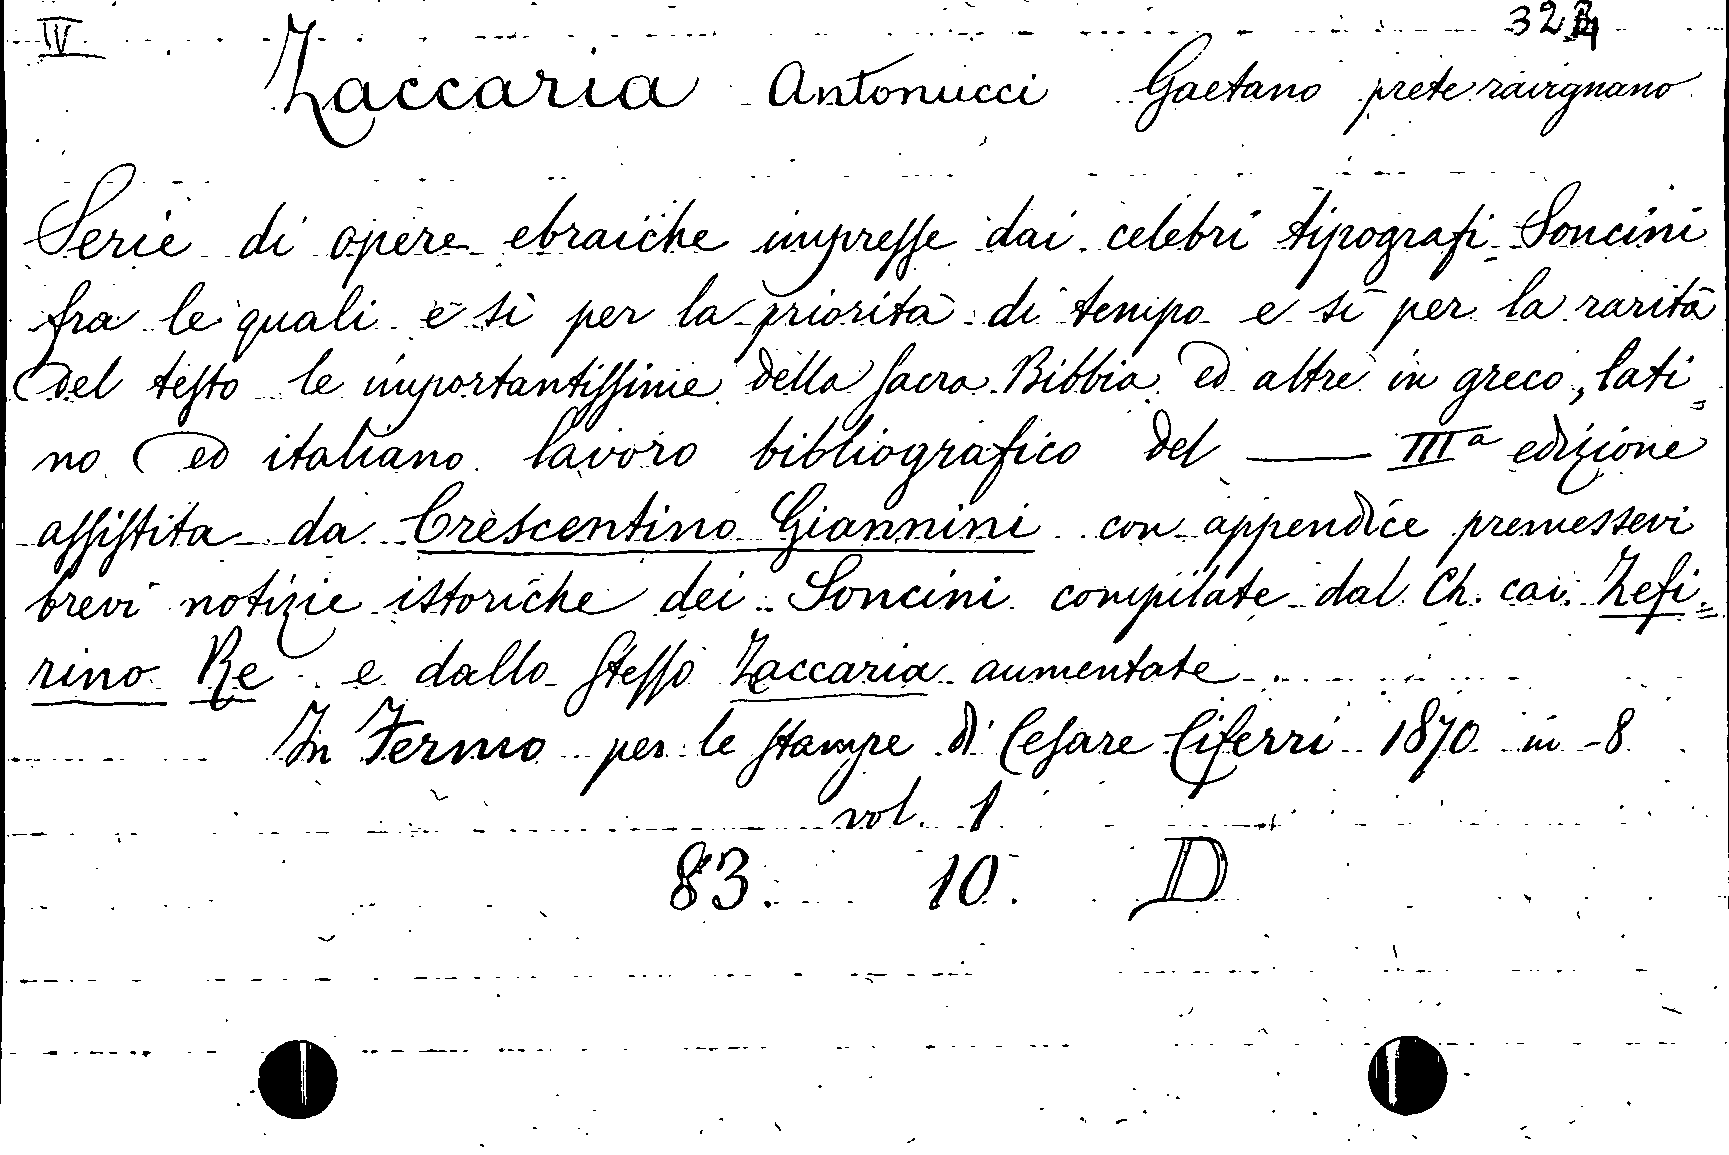 IV 324
Zaccaria Antonucci Gaetano prete ravignano
Serie di opere ebraiche impresse dai celebri tipografi Soncini
fra le quali e sì per la priorità di tempo e sì per la rarità
del testo le importantissime della sacra Bibbia ed altre in greco, lati=
no ed italiano lavoro bibliografico del —— IIIª edizione
assistita da Crescentino Giannini con appendice premessevi
brevi notizie istoriche dei Soncini compilate dal Ch. cav. Zefi=
rino Re e dallo stesso Zaccaria aumentate
In Fermo per le stampe di Cesare Ciferri 1870 in-8
vol. 1
83. 10. D